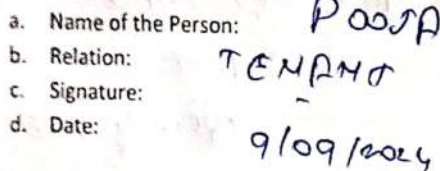 a. Name of the Person: POOJA
b. Relation: TENANT
c. Signature: -
d. Date: 9/09/2024